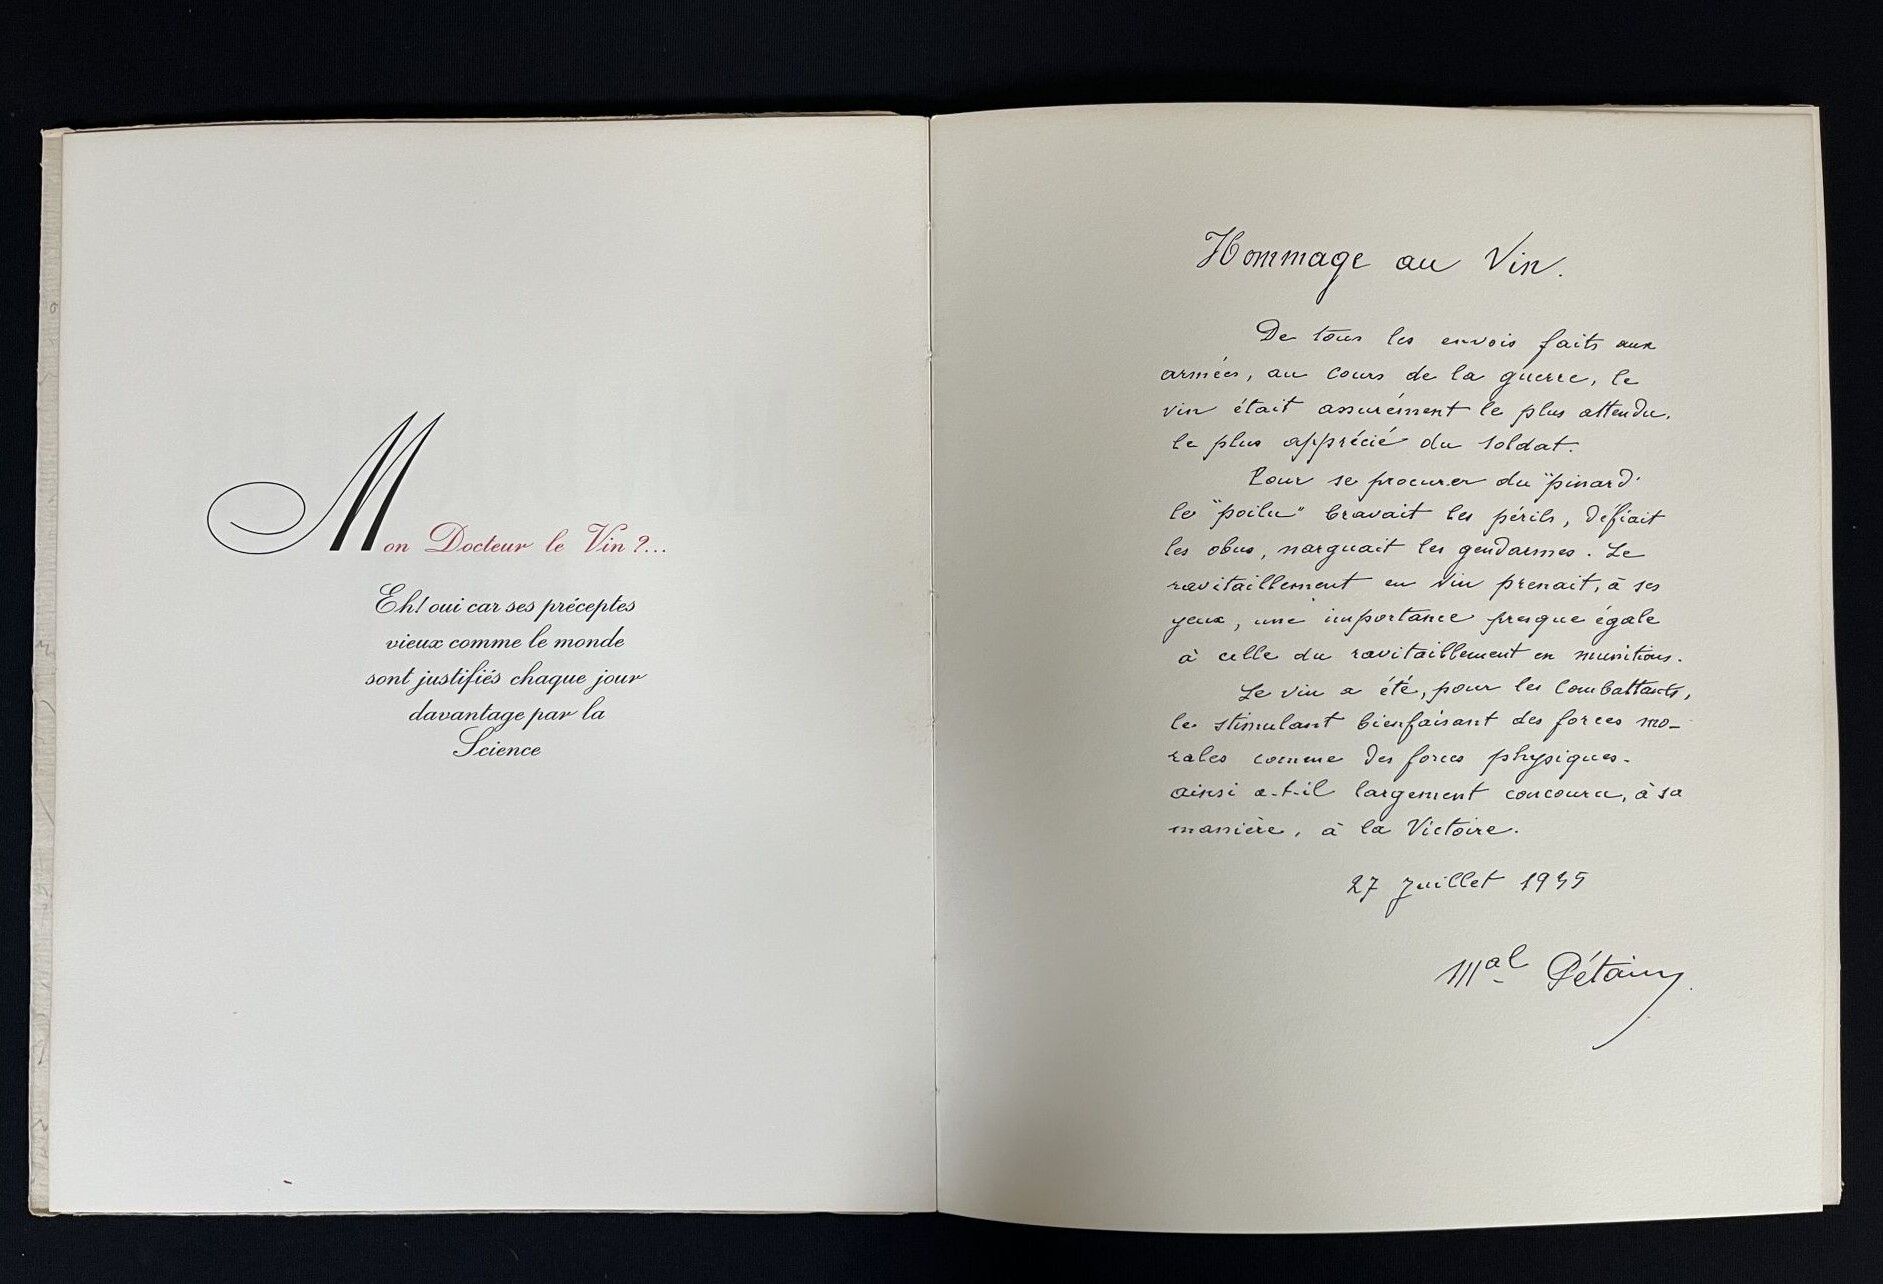 Mon Docteur le Vin ?...
Eh! oui car ses préceptes
vieux comme le monde
sont justifiés chaque jour
davantage par la
Science
Hommage au Vin.
De tous les envois faits aux
armées, au cours de la guerre, le
vin était assurément le plus attendu,
le plus apprécié du soldat.
Pour se procurer du "pinard"
le "poilu" bravait les périls, défiait
les obus, narguait les gendarmes. Le
ravitaillement en vin prenait, à ses
yeux, une importance presque égale
à celle du ravitaillement en munitions.
Le vin a été, pour les combattants,
le stimulant bienfaisant des forces mo-
rales comme des forces physiques.
ainsi a-t-il largement concouru, à sa
manière, à la Victoire.
27 Juillet 1935
Mal Pétain.